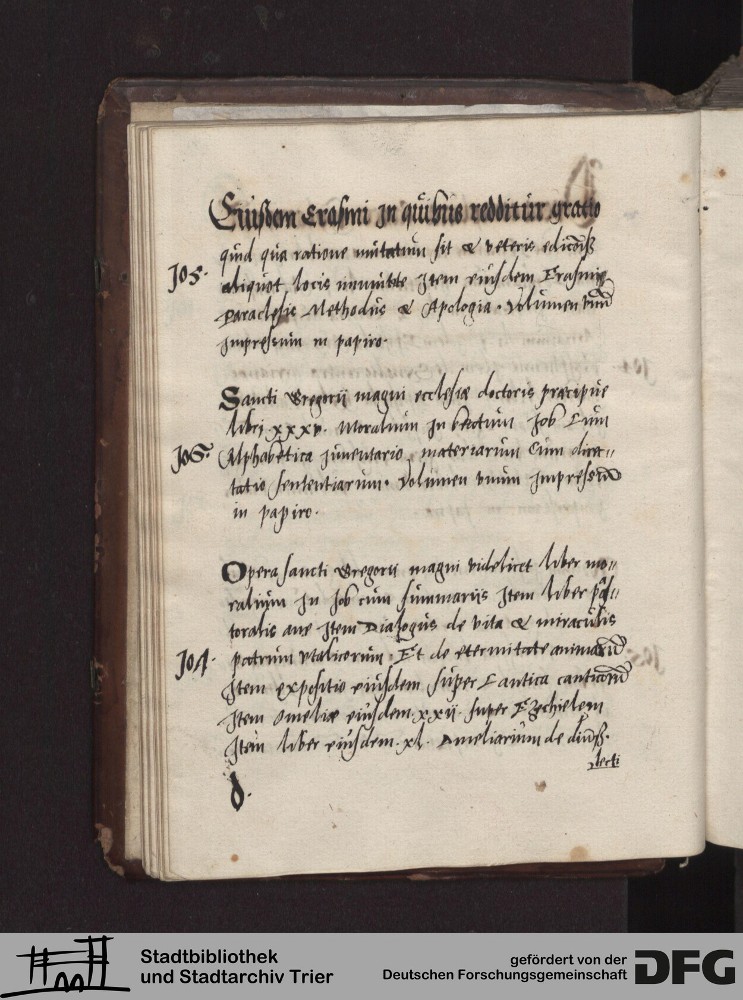 Eiusdem Erasmi In quibus redditur gratio
quid qua ratione mutatum sit & veteris
105. aliquot locis Item eiusdem Erasmi
paraclesis Methodus & Apologia. Volumen
Impressum in papiro.
Sancti Gregorij magni ecclesiæ doctoris præcipue
libri xxxv. Moralium In beatum Job Cum
Alphabetica Inuentario materiarum Cum
tatio sententiarum. Volumen vnum Impressum
in papiro.
Opera sancti Gregorii magni videlicet liber mo„
ralium In Job cum summariis Item liber
toralis Item Dialogus de vita & miraculis
patrum Et de eternitate animarum
Item expositio eiusdem super Cantica canticorum
Item omeliæ eiusdem xxij. super Ezechielem
Item liber eiusdem xl. Omeliarum de
lecti
d.
Stadtbibliothek
und Stadtarchiv Trier
gefördert von der
Deutschen Forschungsgemeinschaft
DFG